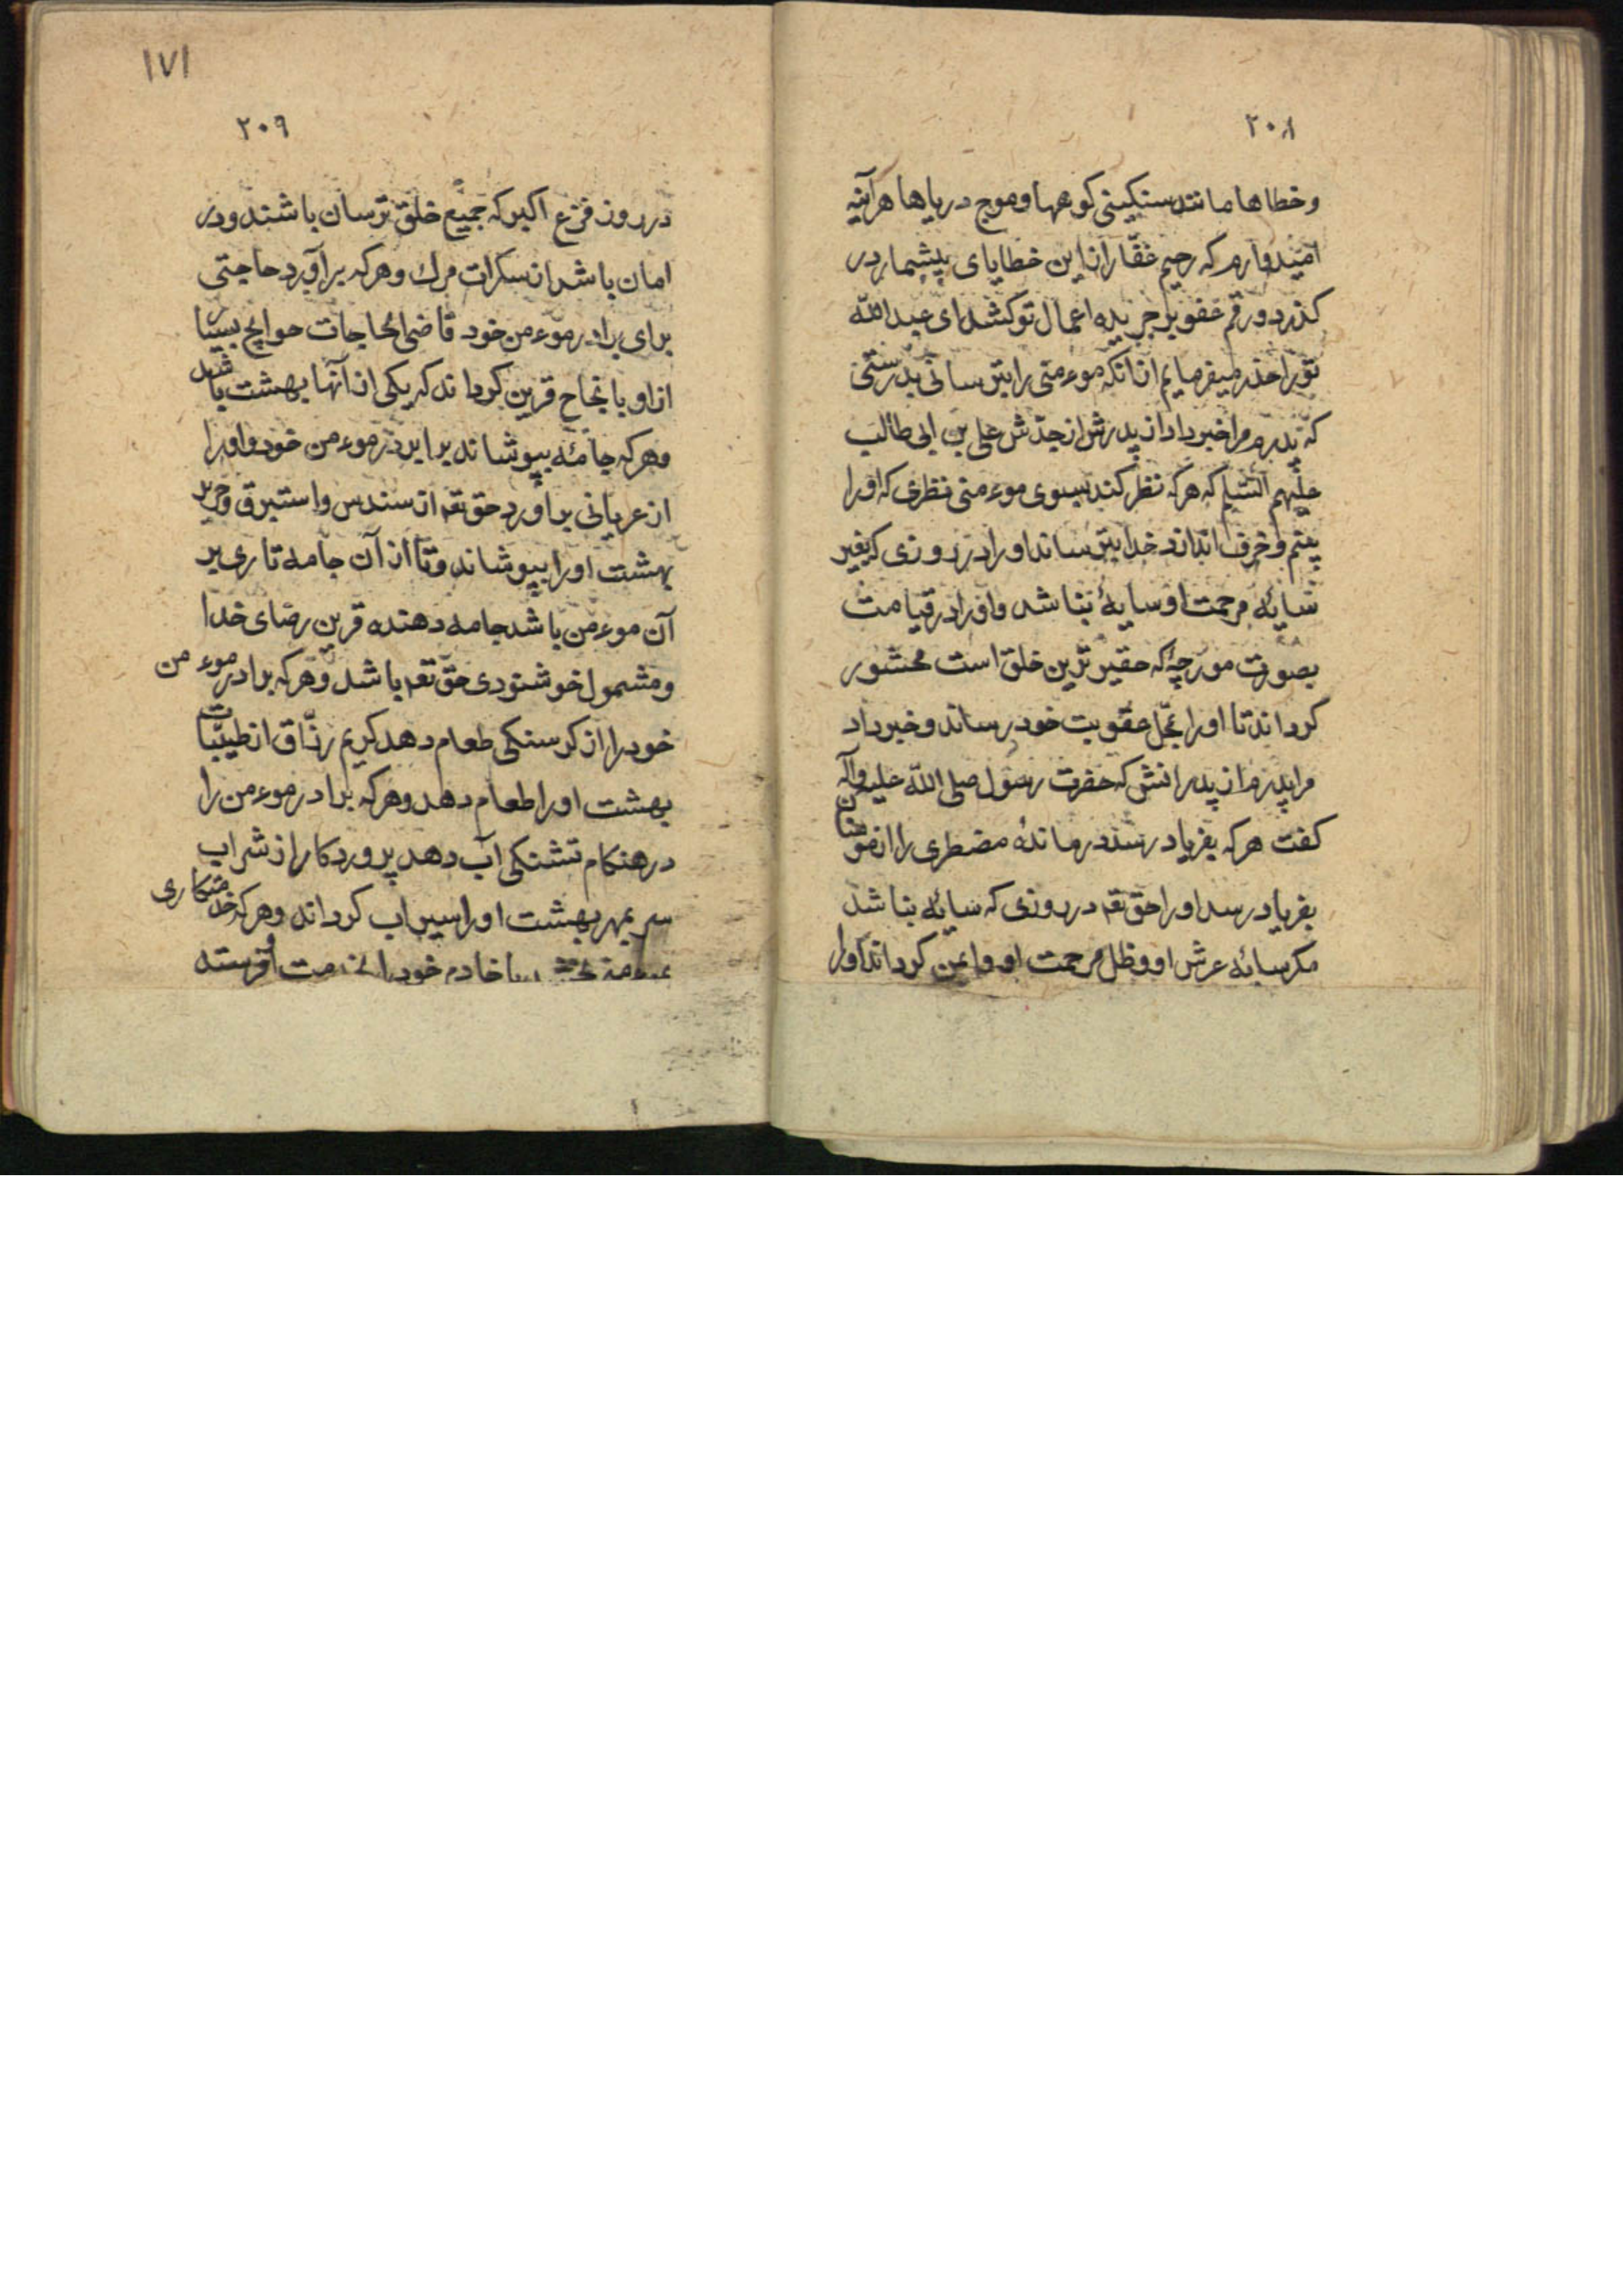 ۲۰۸
وخطاها مانند سنکینی کوهها وموج دریاها هرآینه
امیدوارم که رحیم غفّار از این خطایای بیشمار در
کذرد ورقم عفو بر جریده اعمال تو کشد ای عبد الله
تو را حذر میفرمایم از انکه موء منی را بترسانی بدرستی
که پدرم مرا خبر داد از پدرش از جدّش علی بن ابی طالب
علیهم السّلم که هرکه نظر کند بسوی موء منی نظری که او را
بیم وخوف اندازد خدا بترساند او را در روزی که بغیر
سایهٔ مرحمت او سایهٔ نباشد واو را در قیامت
بصورت مورچهٔ که حقیر ترین خلق است محشور
کرداند تا او را بمحل عقوبت خود رساند وخبر داد
مرا پدرم از پدرانش که حضرت رسول صلی الله علیه وآله
کفت هرکه بفریاد رسد درماندهٔ مضطری را از مومنان
بفریاد رسد او را حق تعه در روزی که سایهٔ نباشد
مکر سایهٔ عرش او وظل مرحمت او وایمن کرداند او را
۱۷۱
۲۰۹
در روز فزع اکبر که جمیع خلق ترسان باشند ودر
امان باشد از سکرات مرك وهرکه برآورد حاجتی
برای برادر موء من خود قاضی الحاجات حوایج بسیار
از او بانجاح قرین کرداند که یکی از آنها بهشت باشد
وهرکه جامهٔ بپوشاند برابردر موء من خود واو را
از عریانی براورد حق تعه از سندس واستبرق وحریر
بهشت او را بپوشاند وتا از آن جامه تاری بر
آن موء من باشد جامه دهنده قرین رضای خدا
ومشمول خوشنودی حقّ تعه باشد وهرکه برادر موء من
خود را از کرسنکی طعام دهد کریم رزّاق از طیّبات
بهشت او را طعام دهد وهرکه برادر موء من را
در هنکام تشنکی آب دهد پروردکار از شراب
سر بمهر بهشت او را سیراب کرداند وهرکه خدمتکاری
خادم خود را خدمت او فرسته